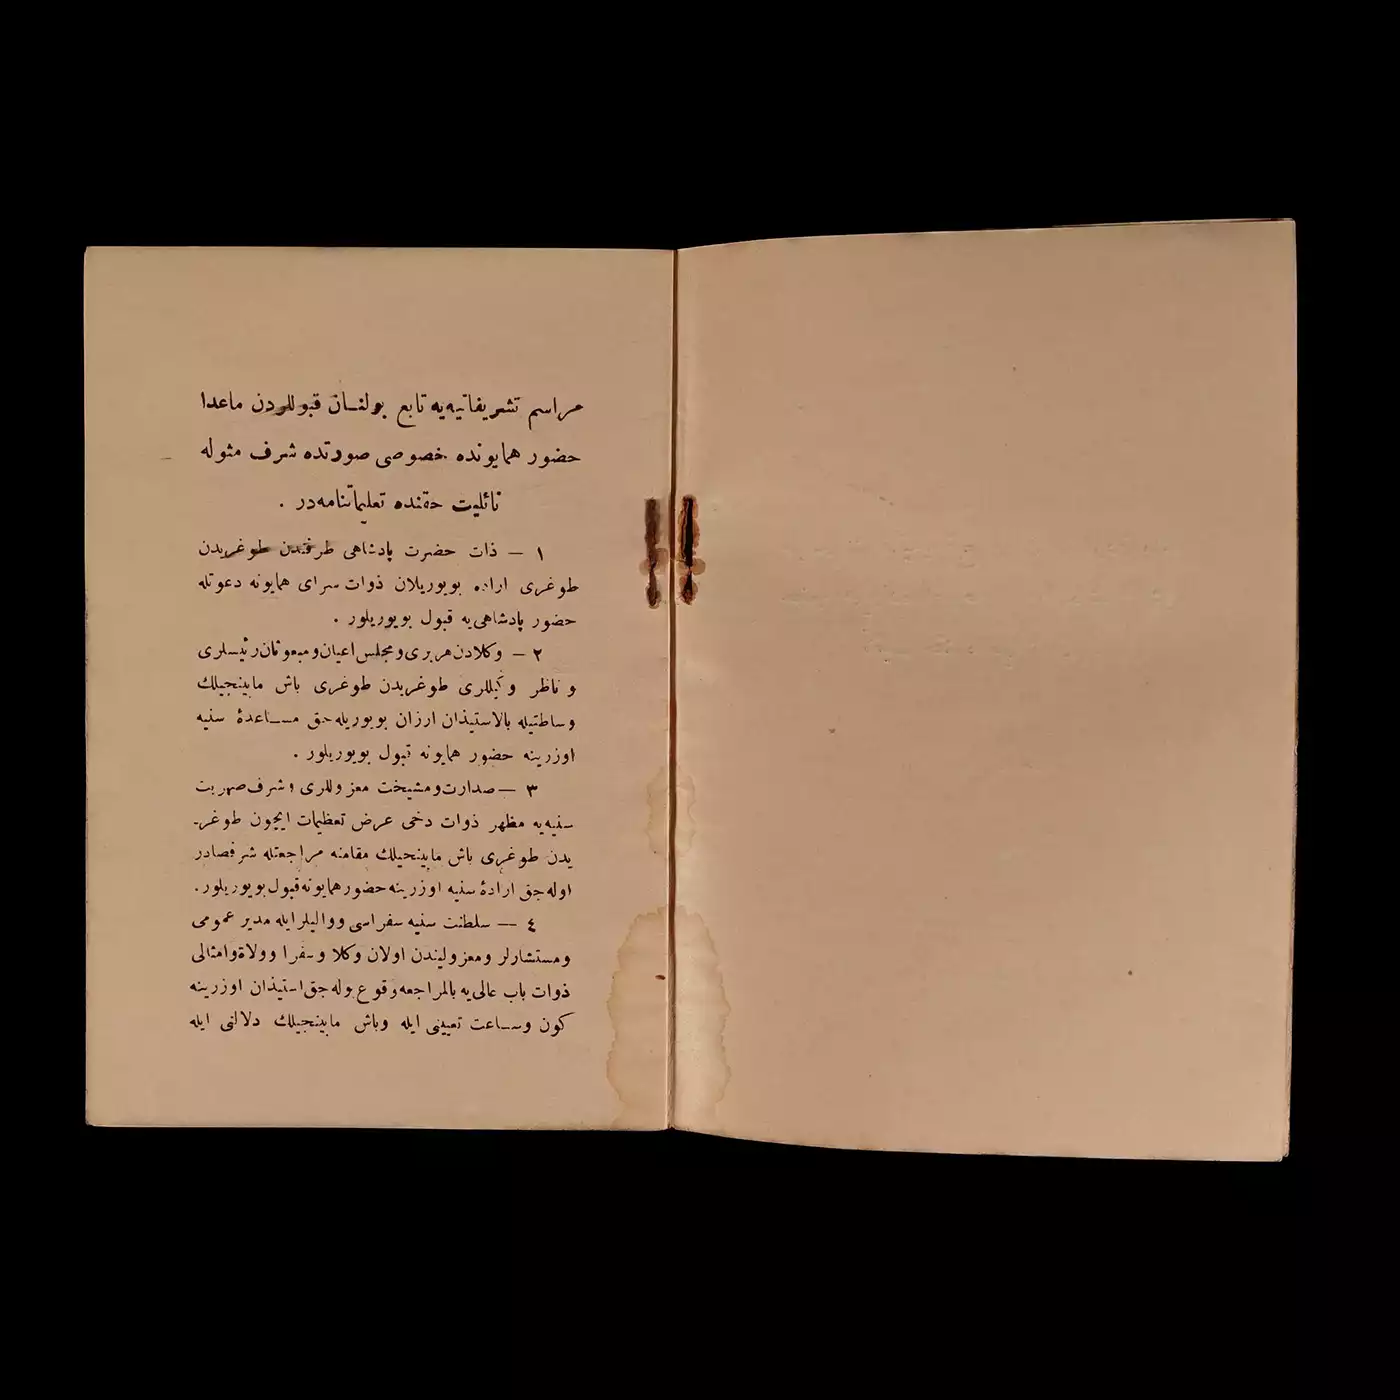 مراسم تشریفاتیه‌یه تابع بولنـان قبوللردن ماعدا
حضور همایونده خصوصی صورتده شرف مثوله
نائلیت حقنده تعلیماتنامه‌در .
١ — ذات حضرت پادشاهی طرفندن طوغریدن
طوغری اراده بویوریلان ذوات سرای همایونه دعوتله
حضور پادشاهی‌یه قبول بویوریلور .
٢ — وكلادن هربری و مجلس اعیان و مبعوثان رئیسلری
و ناظر وكیللری طوغریدن طوغری باش مابینجیلك
وساطتیله بالاستیذان ارزان بویوریله‌جق مسـاعدۀ سنیه
اوزرینه حضور همایونه قبول بویوریلور .
٣ — صدارت و مشیخت معزوللری و شرف صهریت
سنیه‌یه مظهر ذوات دخی عرض تعظیمات ایچون طوغر-
یدن طوغری باش مابینجیلك مقامنه مراجعتله شرفصادر
اوله‌جق ارادۀ سنیه اوزرینه حضور همایونه قبول بویوریلور .
٤ — سلطنت سنیه سفراسی و والیلر ایله مدیر عمومی
و مستشارلر و معزولیندن اولان وكلا و سفرا و ولاة و امثالی
ذوات باب عالی‌یه بالمراجعه وقوع بوله‌جق استیذان اوزرینه
كون وسـاعت تعیینی ایله وباش مابینجیلك دلالتی ایله